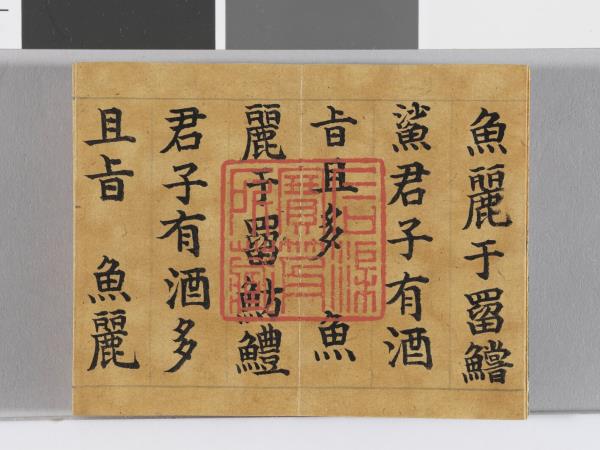 魚麗于罶鱨
鯊君子有酒
旨且多　魚
麗于罶魴鱧
君子有酒多
且旨　魚麗
石渠
寶笈
所藏